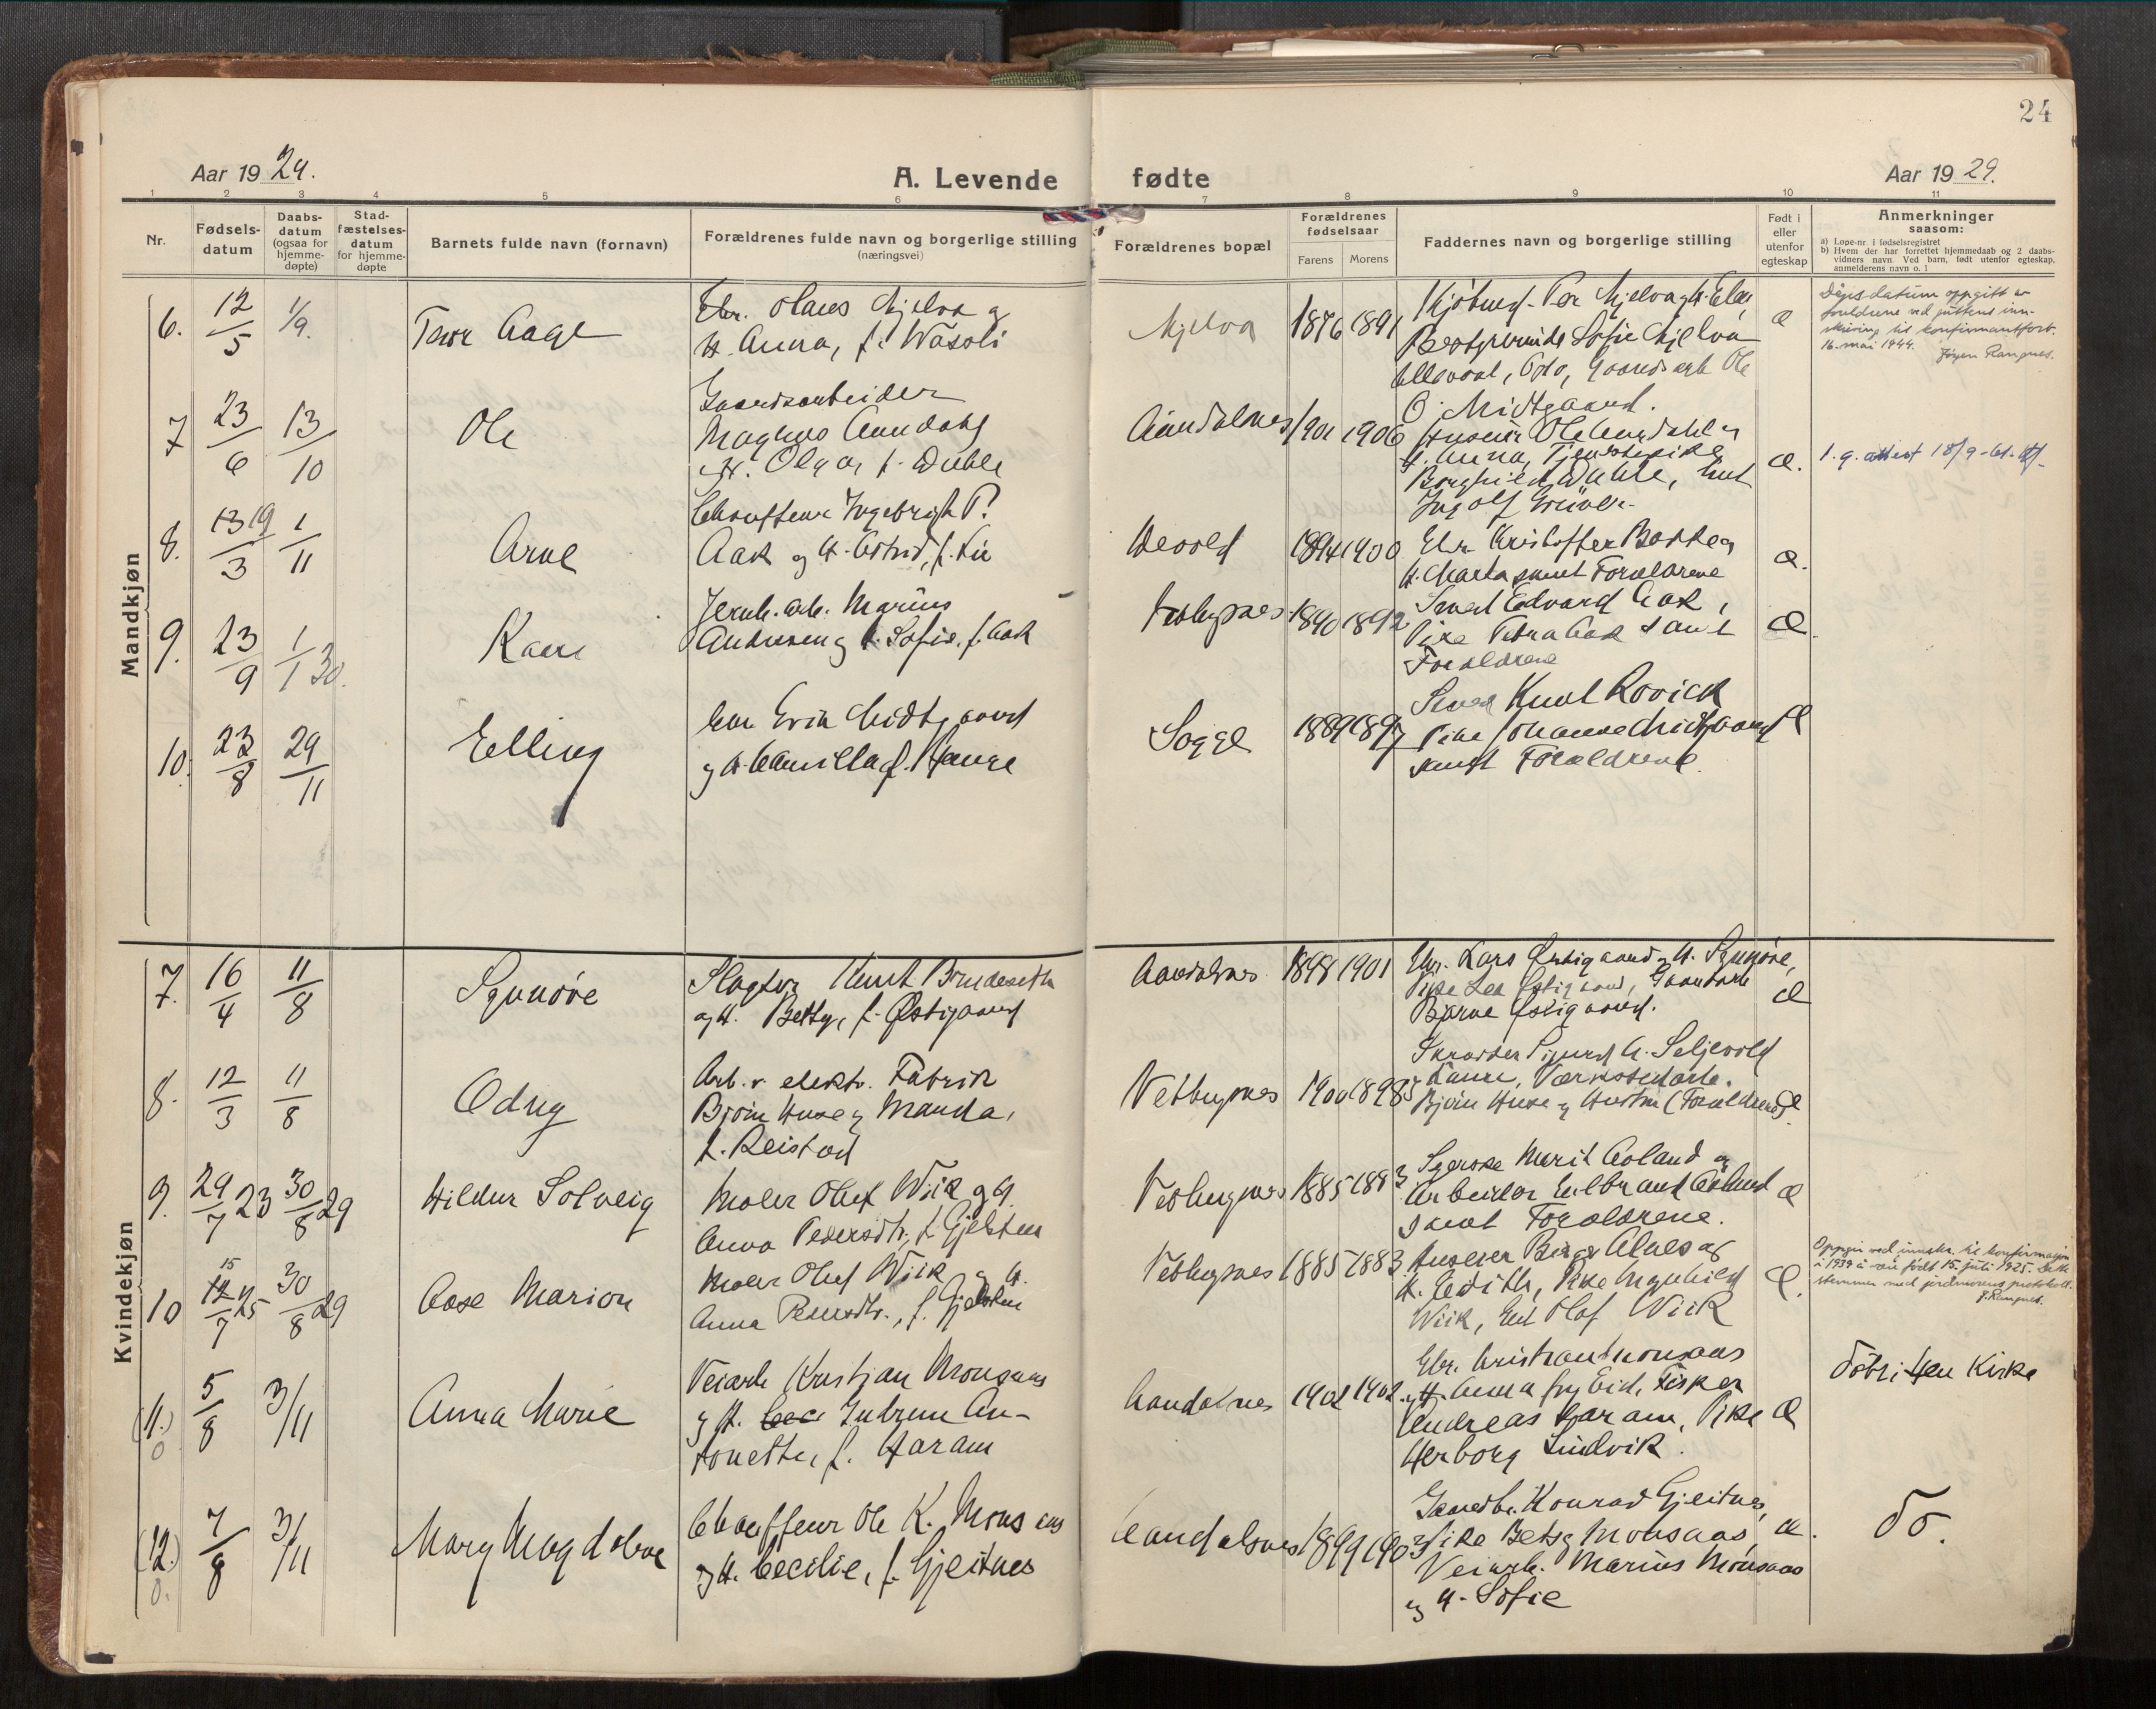 24
Aar 1929.
A. Levende fødte
Aar 1929.
1 2 3 4 5 6 7 8 9 10 11
Nr.
Fødsels-
datum
Daabs-
datum
(ogsaa for
hjemme-
døpte)
Stad-
fæstelses-
datum
for hjemme-
døpte
Barnets fulde navn (fornavn)
Forældrenes fulde navn og borgerlige stilling
(næringsvei)
Forældrenes bopæl
Forældrenes
fødselsaar
Farens Morens
Faddernes navn og borgerlige stilling
Født i
eller
utenfor
egteskap
Anmerkninger
saasom:
a) Løpe-nr. i fødselsregistret
b) Hvem der har forrettet hjemmedaab og 2 daabs-
vidners navn. Ved barn, født utenfor egteskap,
anmelderens navn o. l
Mandkjøn
6. 12/5 1/9.
Tore Aage
Gbr. Olaus Mjelva og
H. Anna, f.
Mjelva
1876 1891
Per Mjelva og H.
Sofie Mjelva
Oslo, Gaardsarb. Ole
O. Midtgaard.
Æ
Døpsdatum oppgitt av
foreldrene ved guttens inn-
skriving til konfirmantforb.
16. mai 1944.
Jørgen Rangnes.
7 23/6 13/10
Ole
Gaardsarbeider
Magnus Aandahl
og H. Olga, f. Dahle
Aandalsnes
1901 1906
Ole Aandahl og
H. Anna, Tjenestepike
Borghild Dahle, Ent
Ingolf
Æ.
1. g. attest 18/9-61.
8. 13 19/3 1/11
Arne
Chauffeur Ingebrigt P.
Aak og H. Astrid, f. Lie
Devold
1894 1900
Gbr. Kristoffer Bakke og
H. Marta samt Forældrene
Æ.
9. 23/9 1/1 30.
Kaare
Jernb. arb. Marius
Andresen og H. Sofie, f. Aak
Veblugsnes
1890 1892
Smed Edvard Aak,
Pike Petra Aak samt
Forældrene
Æ.
10. 23/8 29/11
Elling
Erik Midtgaard
og H. Camilla f. Hauge
Sogge
1889 1897
Knut Rovick
Pike Johanne Midtgaard
samt Forældrene.
Æ
Kvindekjøn
7. 16/4 11/8
Synnøve
Slagter Knut Brudeseth
og H. Betty, f. Østigaard
Aandalsnes
1898 1901
Gbr. Lars Østigaard og H. Synnøve,
Pike Lea Østigaard, Gaardsarb
Bjarne Østigaard.
Æ
8. 12/3 11/8
Odny
Arb. v. elektr. Fabrik
Bjørn Huse og Manda,
f. Reistad
Veblugsnes
1900 1898
Skrædder Sigurd A. Seljevold
Bjørn Huse og Hustru (Forældrene)
Æ
9. 29/7 23 30/8 29
Hildur Solveig
Maler Olaf Wiik og H.
Anna Pedersdtr., f. Gjelsten
Veblugsnes
1885 1883
Syerske Marit Aoland og
Arbeider
samt Forældrene.
Æ
10 15 12/7 25 30/8 29
Aase Marion
Maler Olaf Wiik og H.
Anna Pedersdtr., f. Gjelsten
Veblugsnes
1885 1883
Alnes og
H. Edith, Pike Ingebild
Wiik, Ent Olaf Wiik
Æ.
Oppgir ved innskr. til konfirmasjon
i 1939 å være født 15. juli 1925. Dette
stemmer med jordmorens protokoll.
J. Rangnes.
(11.) 0 5/8 3/11
Anna Marie
Veiarb Kristjan Monsaas
og H. Gudrun An-
tonette, f. Haram
Aandalsnes
1902 1902
Gbr. Kristian Monsaas
og H. Anna Eid, Fisker
Andreas Haram, Pike
Herborg Lindvik.
Æ
Døbt i Hen Kirke
(12.) 0. 7/8 3/11
Mary Magdalene
Chauffeur Ole K. Monsaas
og H. Cecilie, f. Gjeitnes
Aandalsnes
1899 1903
Gaardbr. Konrad Gjeitnes,
Pike Betsy Monsaas,
Veiarb. Marius Monsaas
og H. Sofie
Æ.
Do.